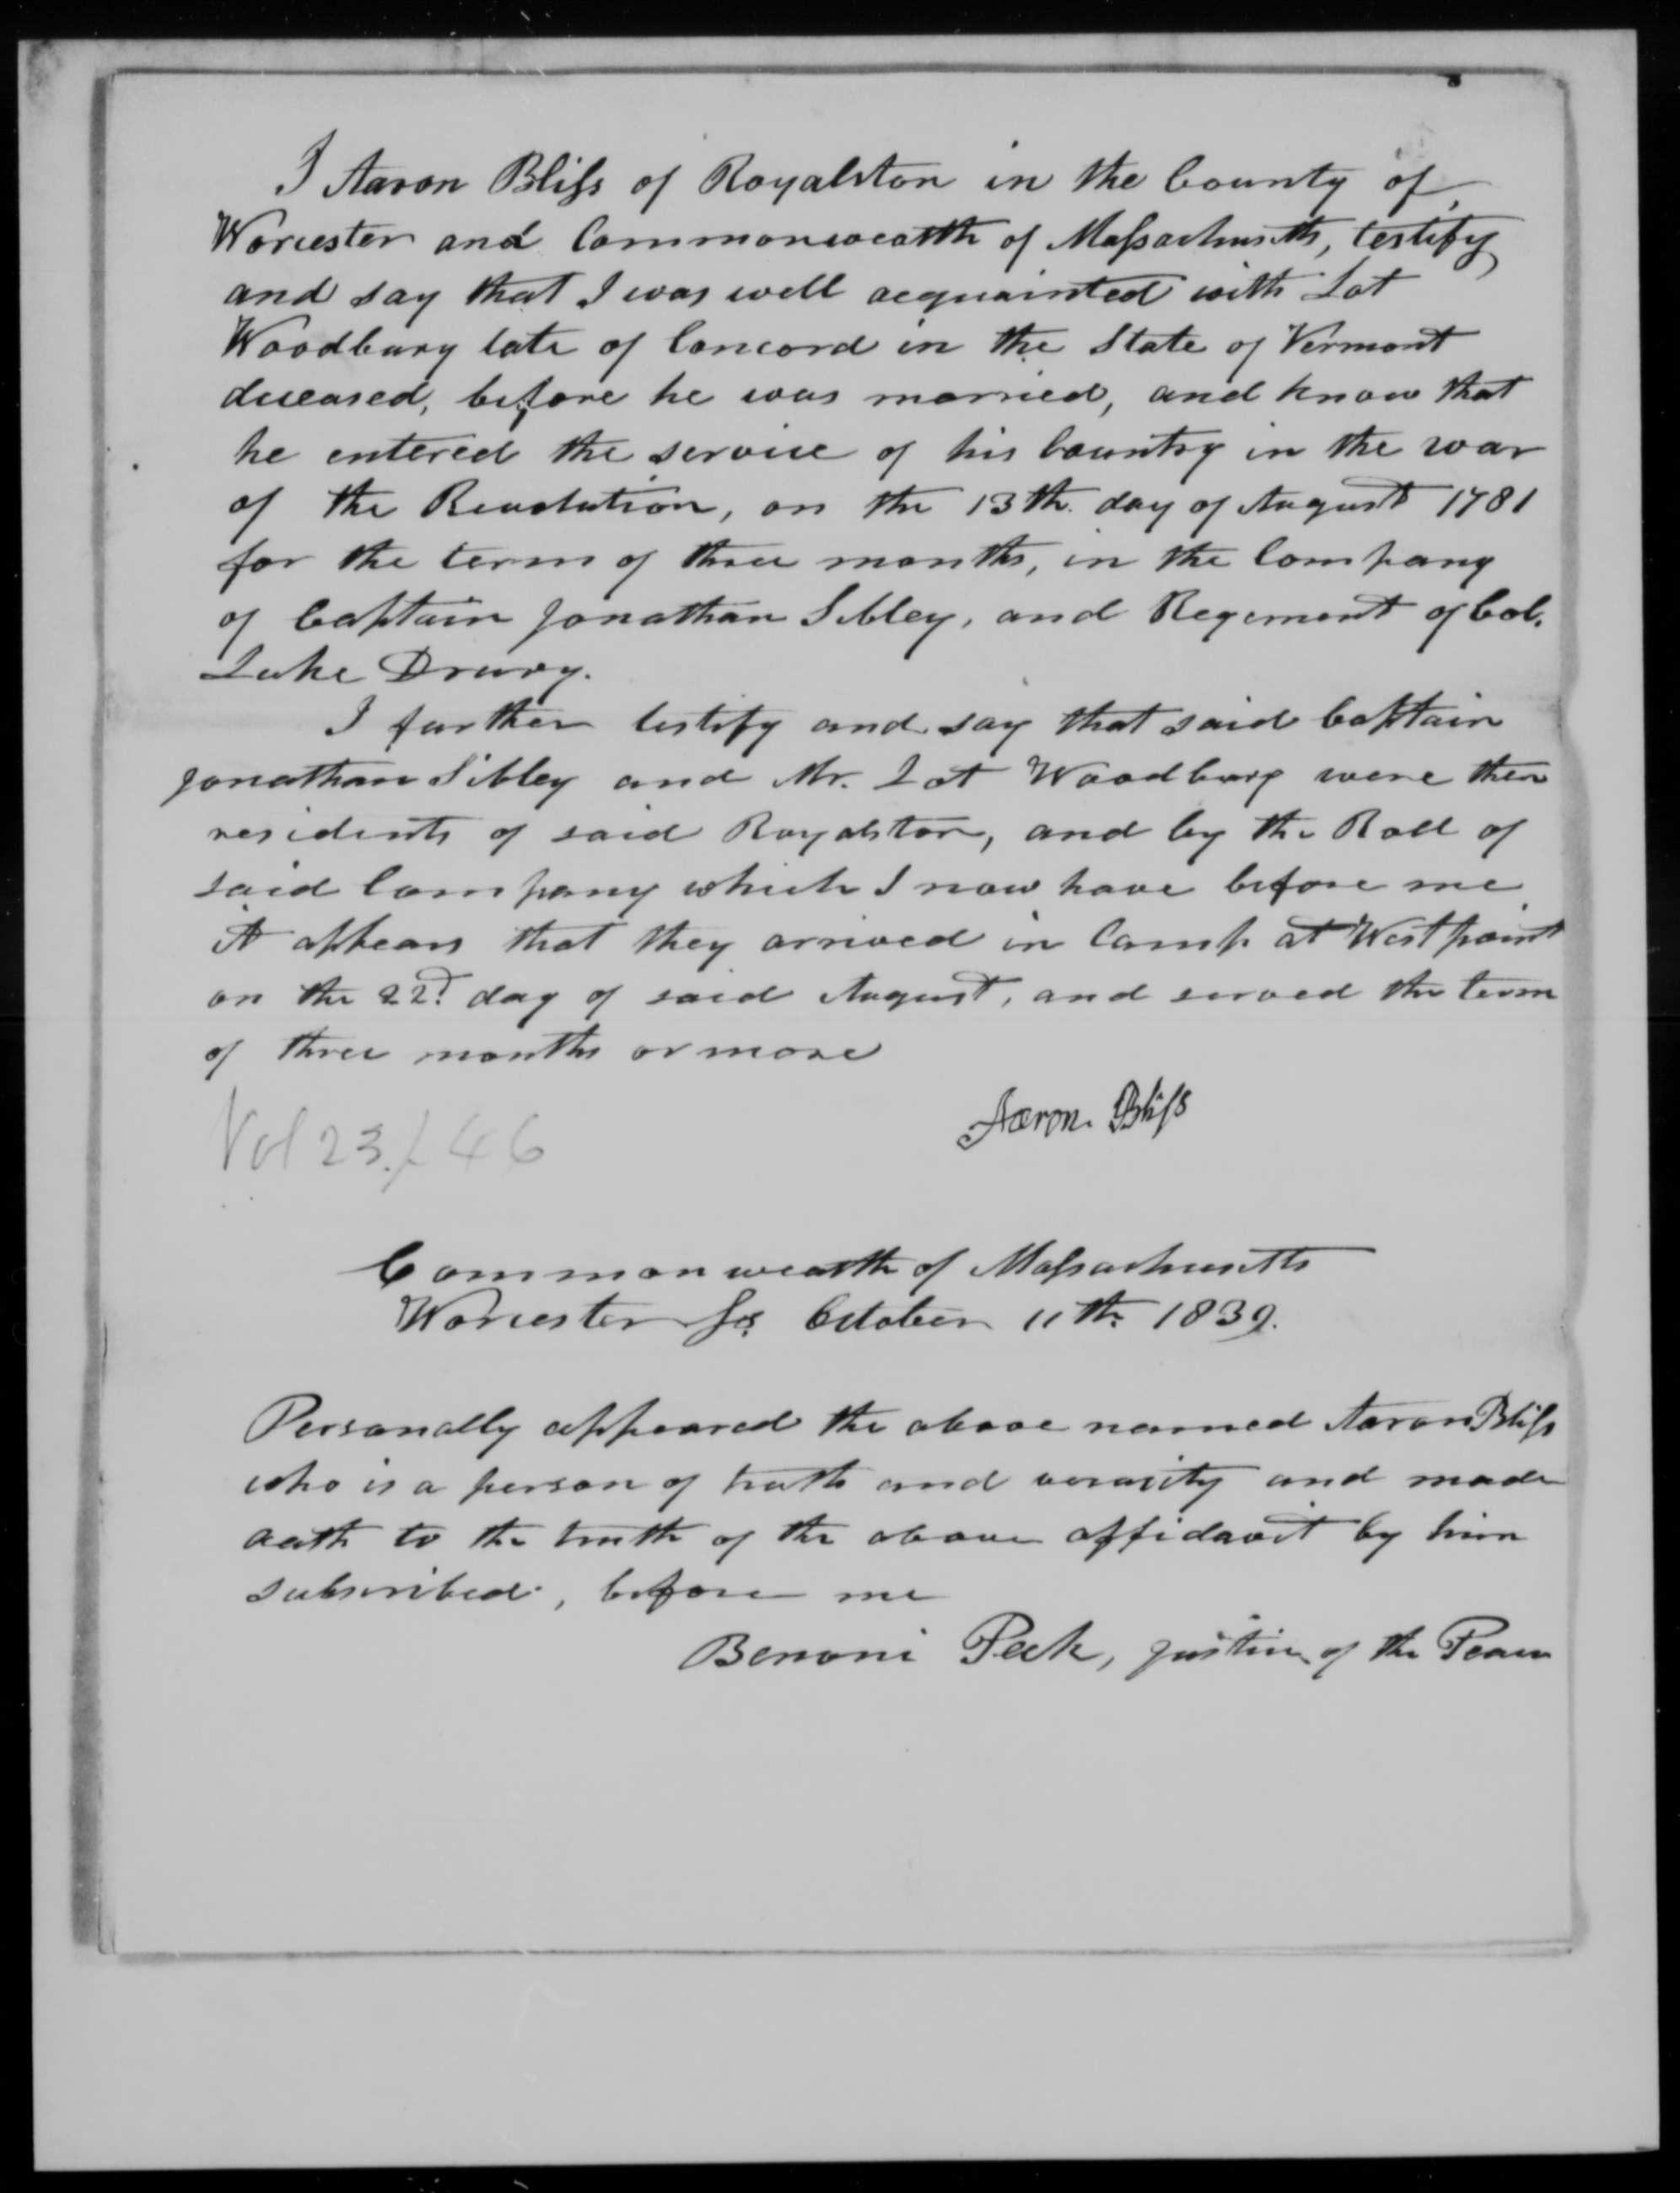 I Aaron Bliss of Royalston in the County of
Worcester and Commonwealth of Massachusetts, testify
and say that I was well acquainted with Lot
Woodbury late of Concord in the State of Vermont
deceased, before he was married, and know that
he entered the service of his Country in the war
of the Revolution, on the 13th. day of August 1781
for the term of three months, in the Company
of Captain Jonathan Sibley, and Regement of Col.
Luke Drury.
I further testify and say that said Captain
Jonathan Sibley and Mr. Lot Woodbury were then
residents of said Royalston, and by the Roll of
said Company which I now have before me
it appears that they arrived in Camp at West point
on the 22d. day of said August, and served the term
of three months or more
Aaron. Bliss
Vol 23. 46
Commonwealth of Massachusetts
Worcester Ss. October 11th. 1839.
Personally appeared the above named Aaron Bliss
who is a person of truth and veracity and made
oath to the truth of the above affidavit by him
subscribed, before me
Benoni Peck, Justice of the Peace